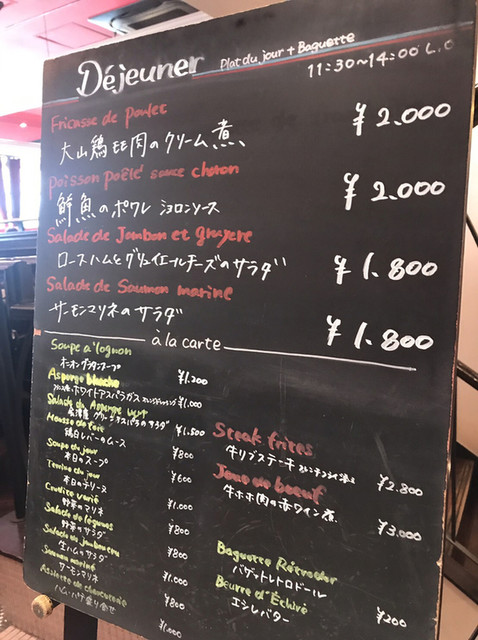 Déjeuner Plat du jour + Baguette
11:30~14:00 L.O
Fricasse de Poulet
大山鶏モモ肉のクリーム煮 ¥2.000
poisson poêlé sauce choron
鮮魚のポワレ ショロンソース ¥2.000
Salade de Jambon et gruyere
ロースハムとグリュイエールチーズのサラダ ¥1.800
Salade de Saumon marine
サーモンマリネのサラダ ¥1.800
à la carte
Soupe a l'ognon
オニオングラタンスープ ¥1.200
Asperge blanche
ホワイトアスパラガス ¥1.000
Salade de Asperge vert
グリーンアスパラのサラダ ¥1.500
Mousse de foie
鶏白レバーのムース ¥800
Soupe du jour
本日のスープ ¥600
Terrine du jour
本日のテリーヌ ¥1.000
Crudite varié
野菜のマリネ ¥800
Salade de légumes
野菜のサラダ ¥800
Salade de jambon cru
生ハムのサラダ ¥1.000
Saumon mariné
サーモンマリネ ¥800
Assiette de charcuterie
ハム・パテ盛り合せ ¥1.000
Steak frites
牛リブステーキ ¥2.800
Joue de boeuf
牛ホホ肉の赤ワイン煮 ¥3.000
Baguette Rétrodor
バゲットレトロドール
Beurre d'Échiré
エシレバター ¥200